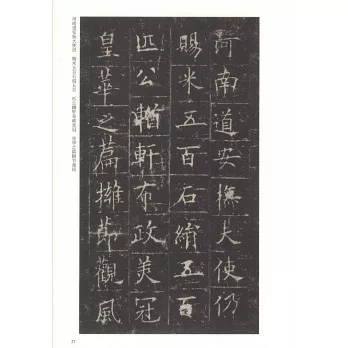 河南道安撫大使仍
賜米五百石絹五百
匹公輶軒布政美冠
皇華之篇擁節觀風
27